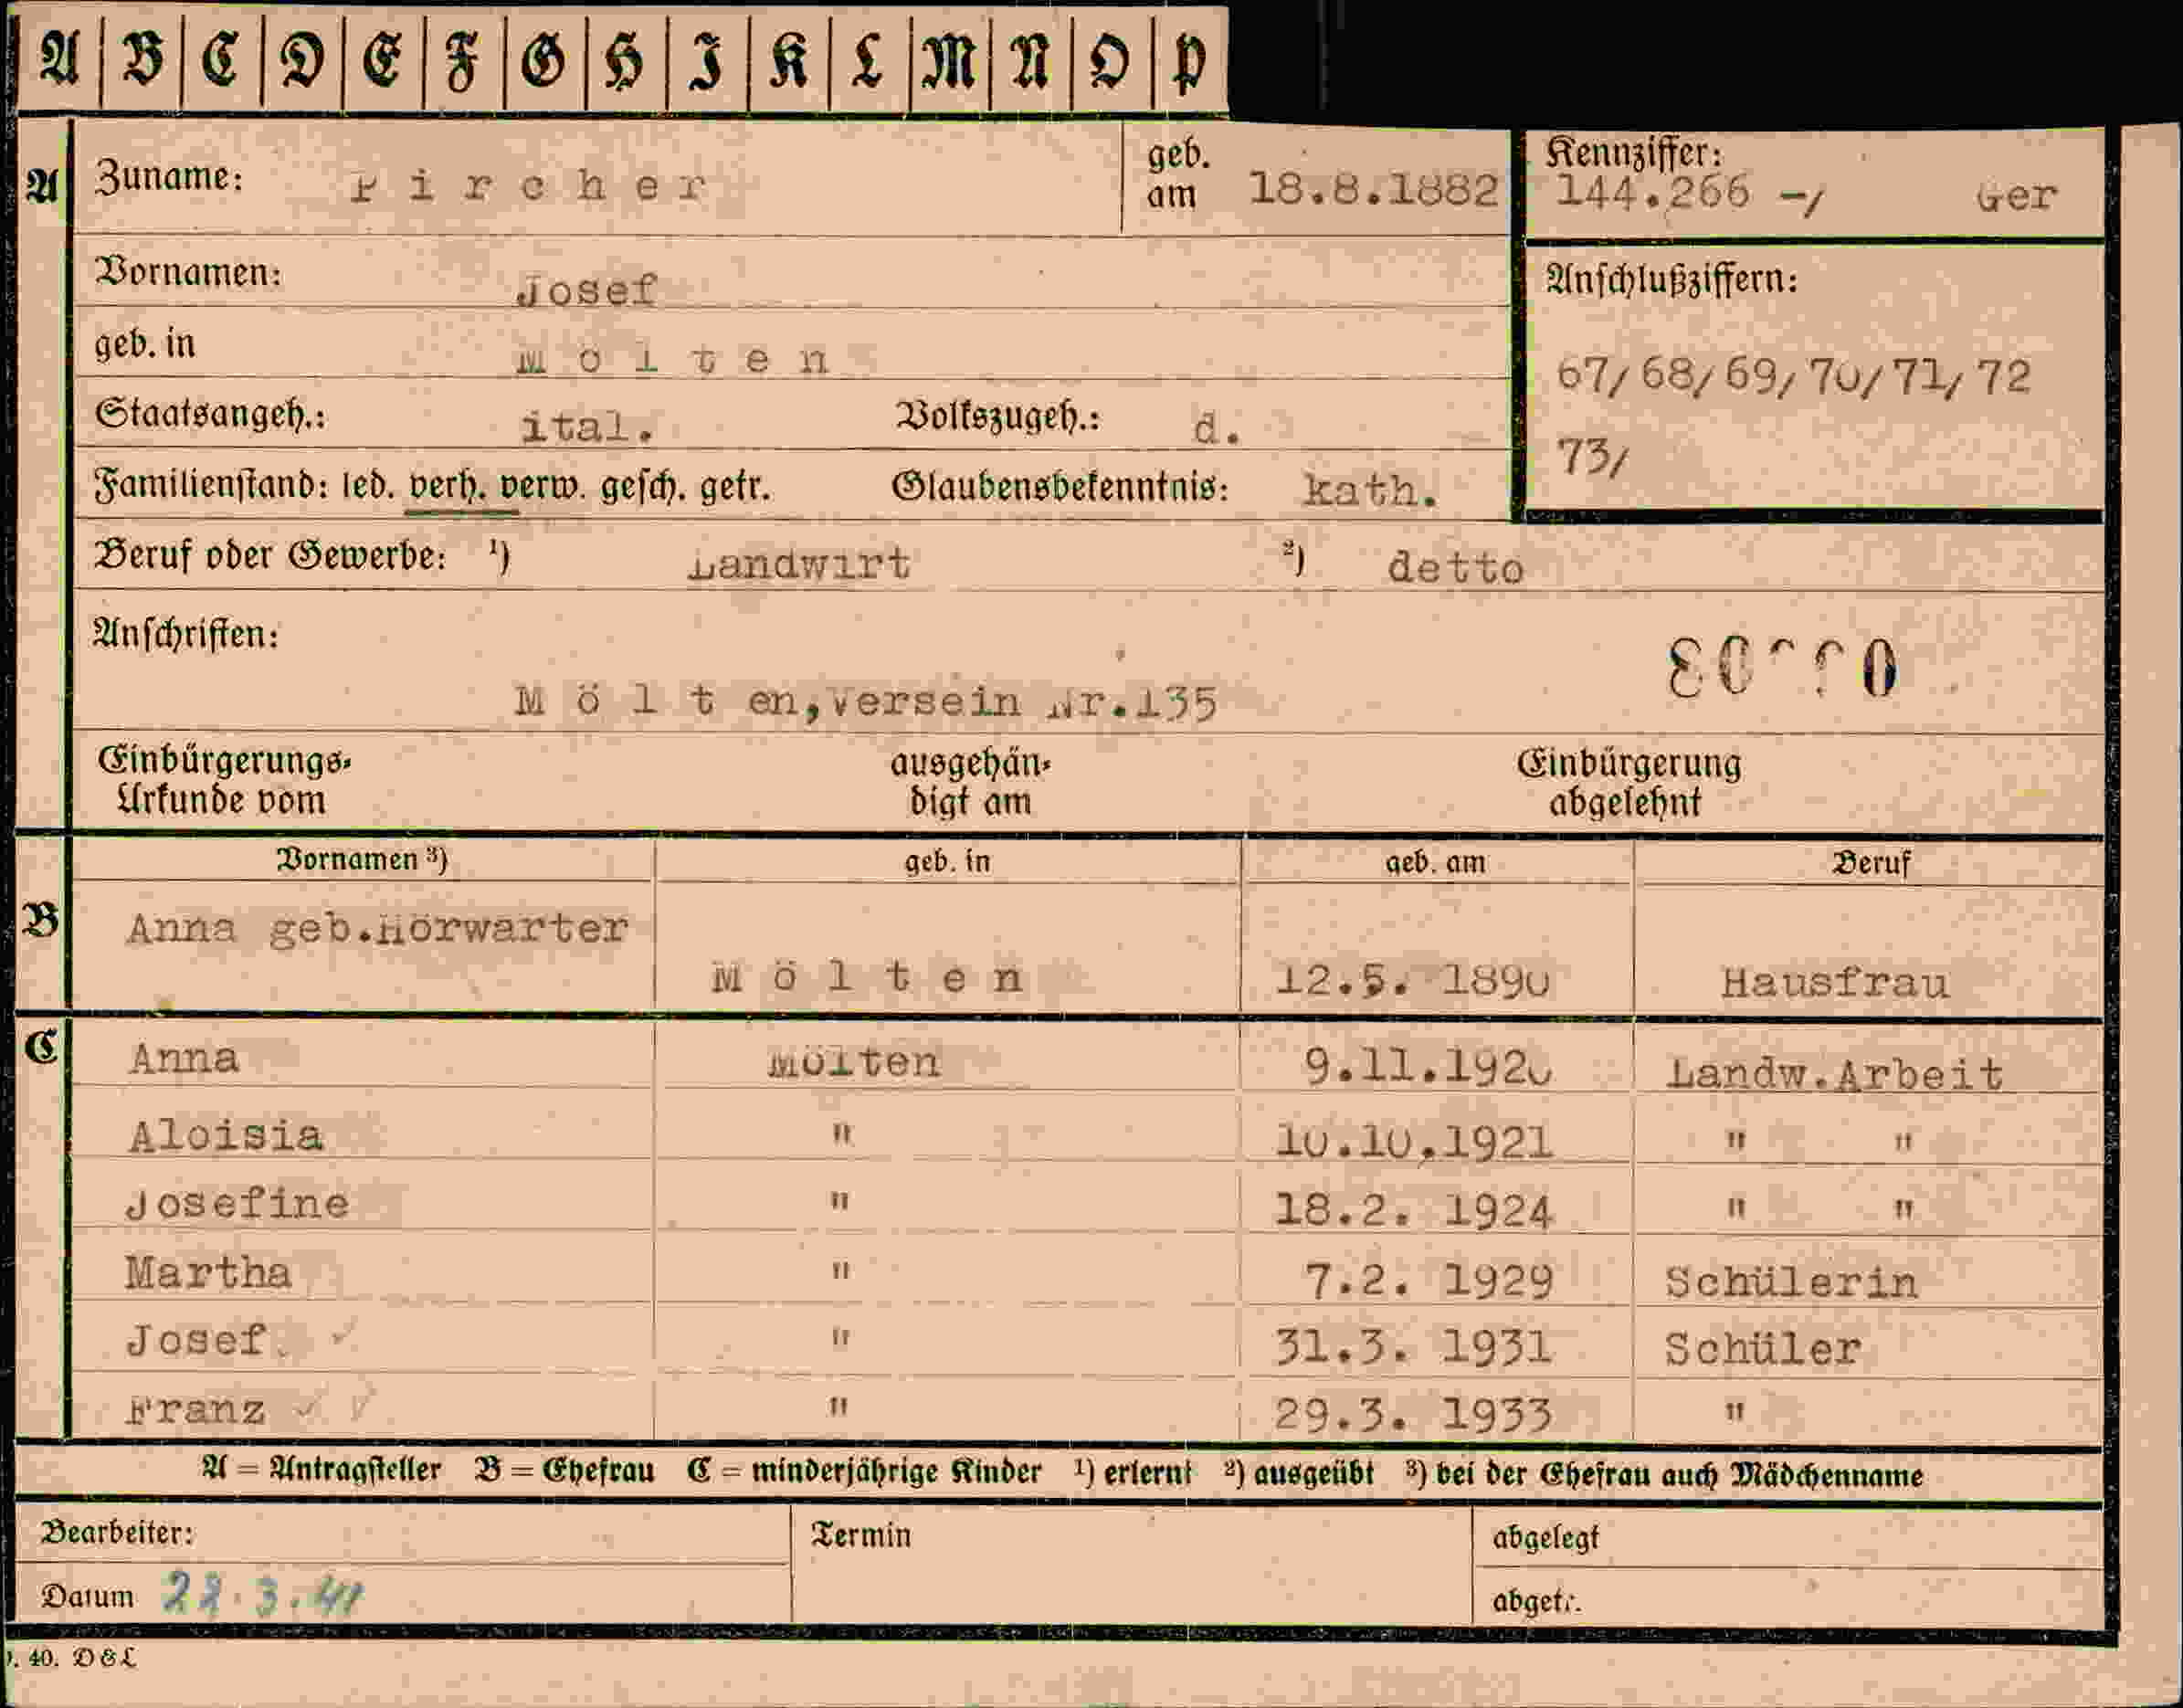 A B C D E F G H I K L M N O P
A Zuname: Pircher geb. am 18.8.1882 Kennziffer: 144.266 -/ Ger
Vornamen: Josef Anschlußziffern:
geb. in Mölten 67/68/69/70/71/72
Staatsangeh.: ital. Volkszugeh.: d. 73/
Familienstand: led. verh. verw. gesch. getr. Glaubensbekenntnis: kath.
Beruf oder Gewerbe: 1) Landwirt 2) detto
Anschriften:
Mölten, Versein Nr.135
Einbürgerungs-Urkunde vom ausgehändigt am Einbürgerung abgelehnt
Vornamen 3) geb. in geb. am Beruf
B Anna geb.Hörwarter
Mölten 12.5. 1890 Hausfrau
C Anna Mölten 9.11.1920 Landw.Arbeit
Aloisia " 10.10.1921 " "
Josefine " 18.2. 1924 " "
Martha " 7.2. 1929 Schülerin
Josef " 31.3. 1931 Schüler
Franz " 29.3. 1933 "
A = Antragsteller B = Ehefrau C = minderjährige Kinder 1) erlernt 2) ausgeübt 3) bei der Ehefrau auch Mädchenname
Bearbeiter: Termin abgelegt
Datum abgetr.
40. D&L